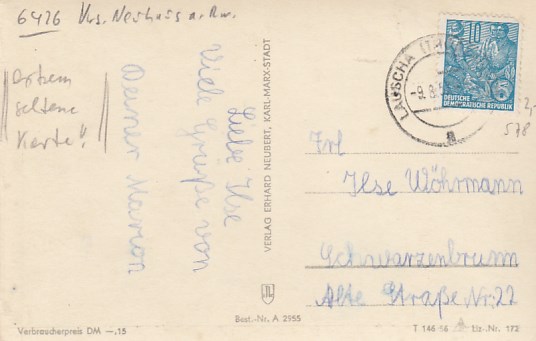 6426 Krs. Neuhaus a. Rw.
extrem
seltene
Karte!!
Liebe Ilse
Viele Grüße von
Deiner Marion
VERLAG ERHARD NEUBERT, KARL-MARX-STADT
LAUSCHA (TH
-9.8.5
a
10
5
DEUTSCHE
DEMOKRATISCHE REPUBLIK
2,-
578
Frl
Ilse Wöhrmann
Schwarzenbrunn
Alte Straße Nr. 22
Best.-Nr. A 2955
Verbraucherpreis DM —.15
T 146-56
Liz.-Nr. 172